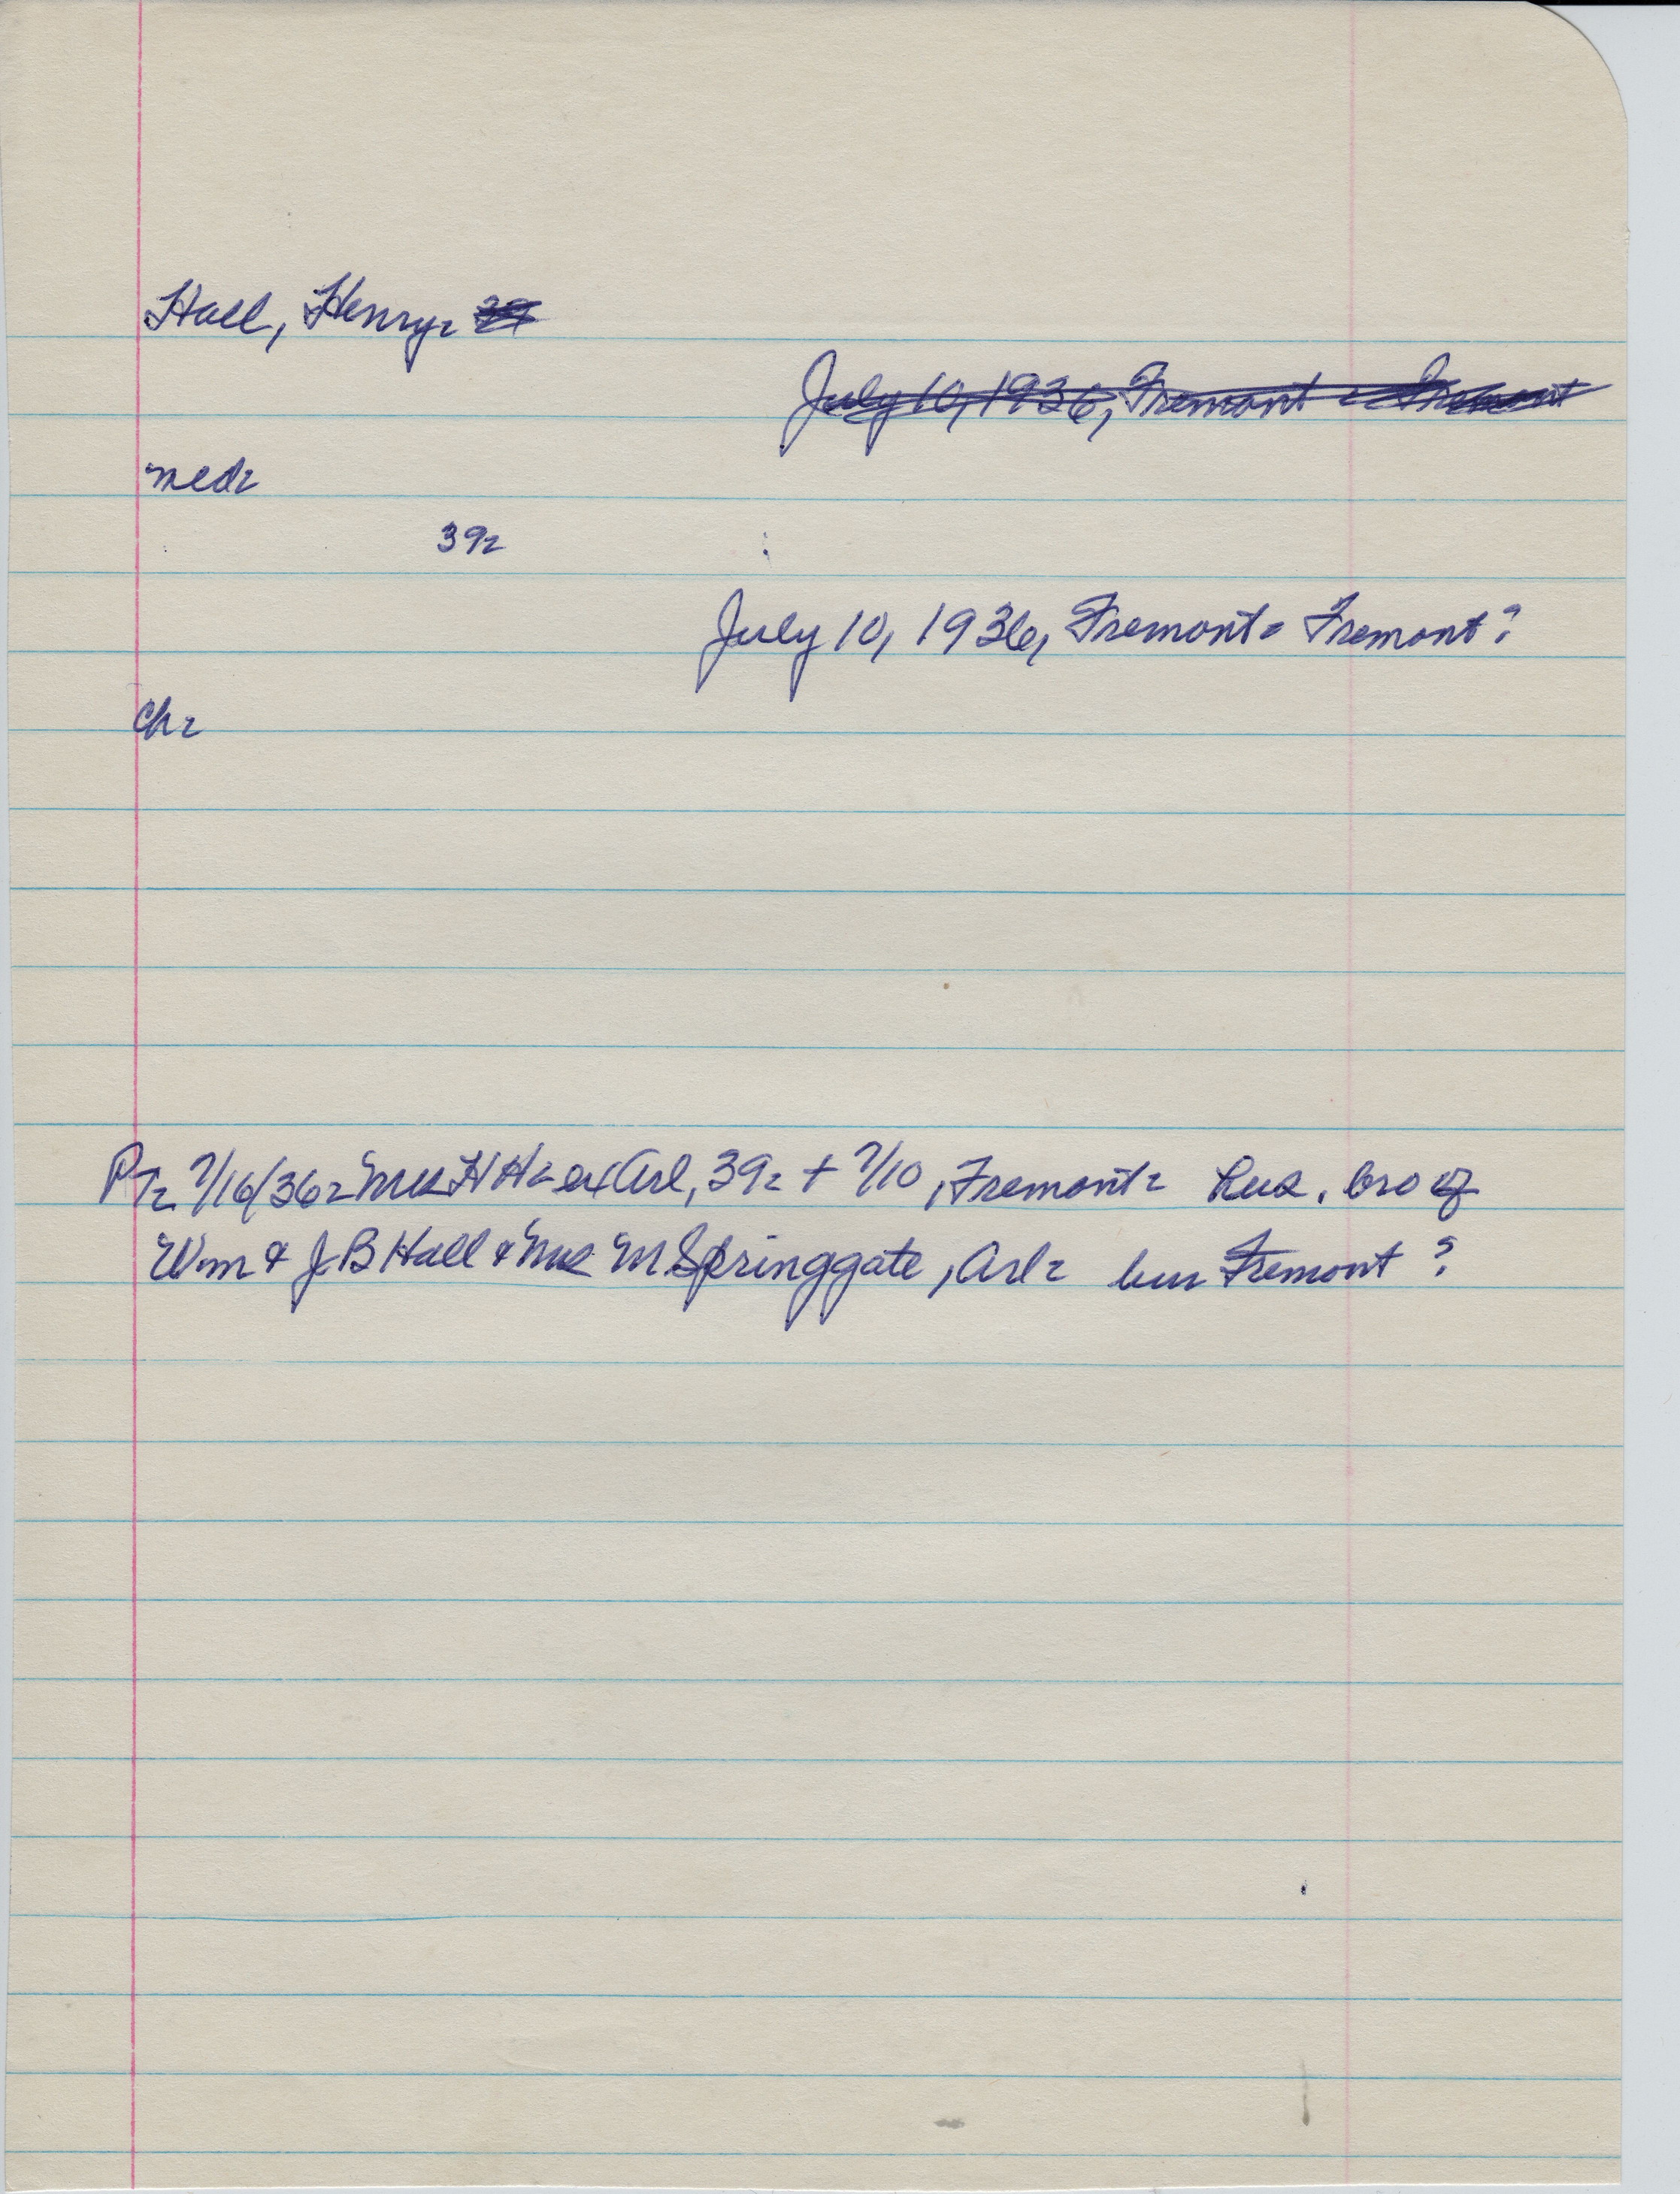 Hall, Henry- 39
July 10, 1936, Fremont - Fremont
med-
39-
July 10, 1936, Fremont - Fremont?
Ch-
PT- 7/16/36- Mrs H H- ex Arl, 39- + 7/10, Fremont- Hus. bro of
Wm & J B Hall & Mrs M Springgate, Arl- bur Fremont?